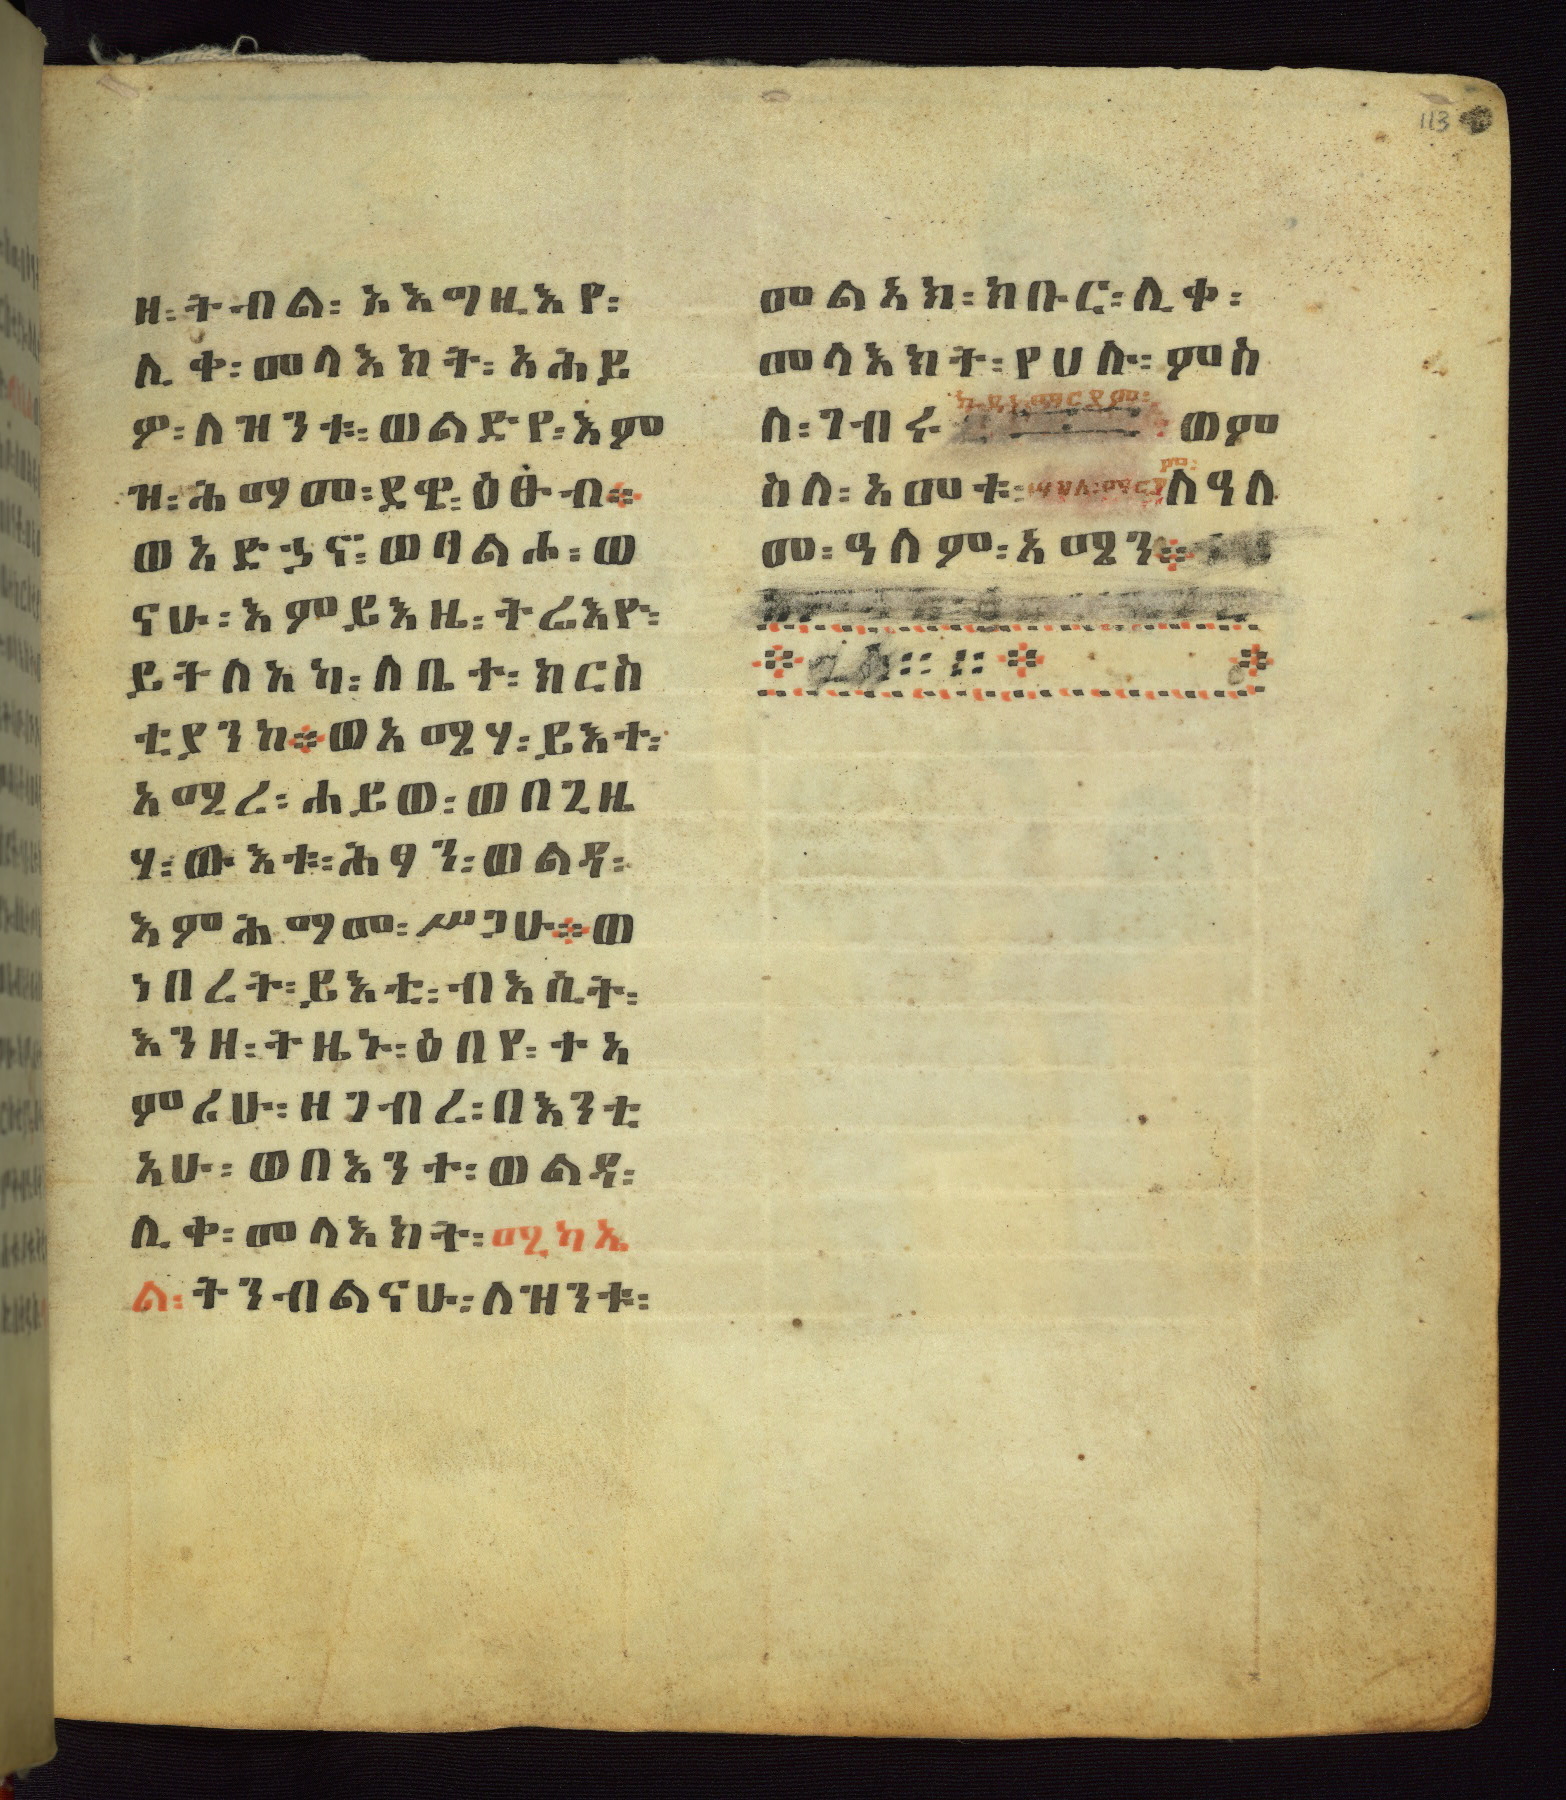 113
ዘ፡ ትብል፡ አእግዚእየ፡
ሊቀ፡ መላእክት፡ አሕይ
ዎ፡ ለዝንቱ፡ ወልድየ፡ እም
ዝ፡ ሕማመ፡ ደዌ፡ ዕፁብ፨
ወአድኃና፡ ወባልሐ፡ ወ
ናሁ፡ እምይእዜ፡ ትሬእዮ፡
ይትለአካ፡ ለቤተ፡ ክርስ
ቲያንከ፨ ወአሜሃ፡ ይእተ፡
አሚረ፡ ሐይወ፡ ወበጊዜ
ሃ፡ ውእቱ፡ ሕፃን፡ ወልዳ፡
እምሕማመ፡ ሥጋሁ፨ ወ
ነበረት፡ ይእቲ፡ ብእሲት፡
እንዘ፡ ትዜኑ፡ ዕበየ፡ ተአ
ምሪሁ፡ ዘገብረ፡ በእንቲ
አሁ፡ ወበእንተ፡ ወልዳ፡
ሊቀ፡ መላእክት፡ ሚካኤ
ል፡ ትንብልናሁ፡ ለዝንቱ፡
መልአክ፡ ክቡር፡ ሊቀ፡
መላእክት፡ የሀሉ፡ ምስ
ለ፡ ገብሩ ወም
ስለ፡ አመቱ፡ ለዓለ
መ፡ ዓለም፡ አሜን፨